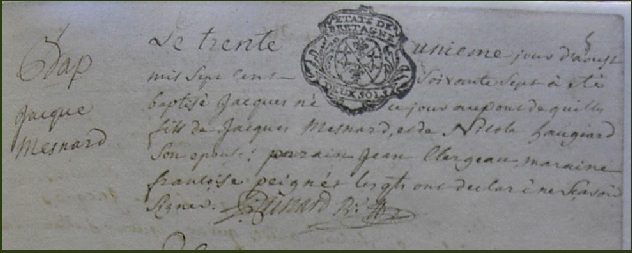 Bap
Jacque
Mesnard
ETATS DE
BRETAGNE
DEUX SOLS
Le trente unieme jour d'aoust
mil sept cent soixante sept a été
baptisé Jacques né ce jour au pont de
fils de Jacques Mesnard, et de Nicole
Son epouse: parain Jean Clergeau, maraine
francoise peigné lesqts ont declaré ne Scavoir
Signer.